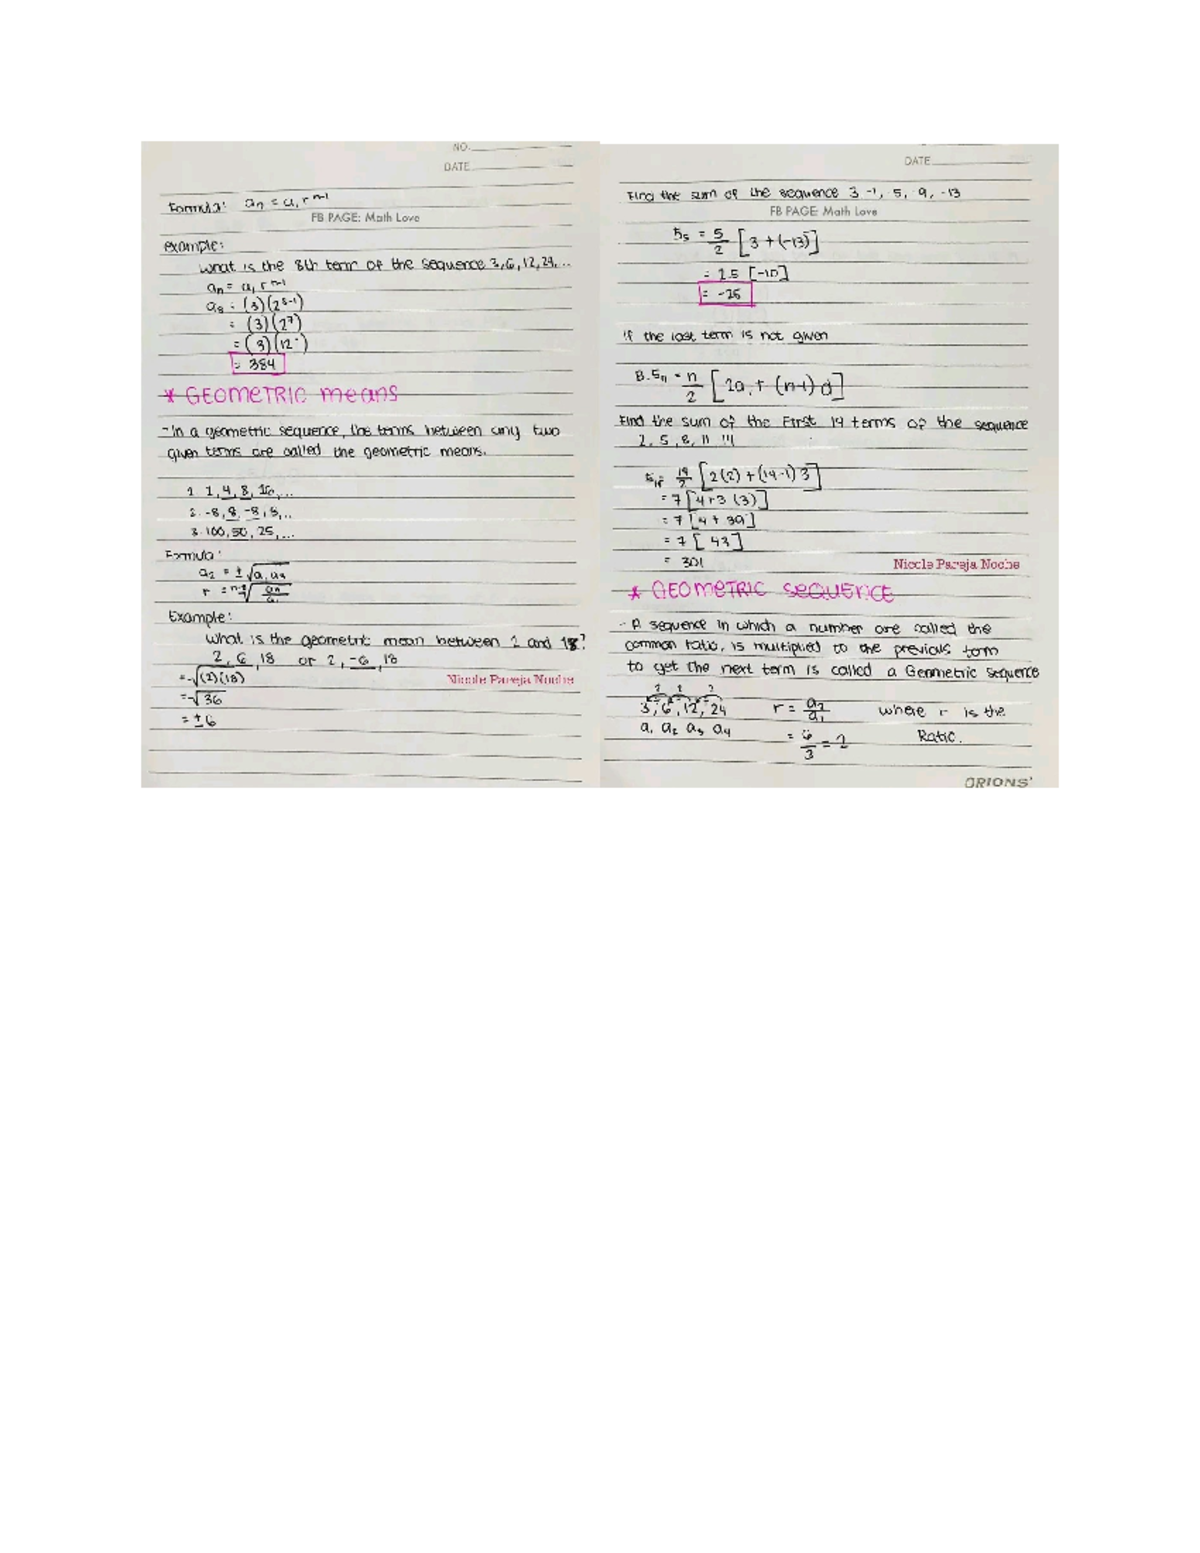 NO.
DATE
Formula: an = a₁ r ⁿ⁻¹
FB PAGE: Math Love
example:
What is the 8th term of the sequence 3,6,12,24,...
an = a₁ r ⁿ⁻¹
a₈ = (3)(2⁸⁻¹)
= (3)(2⁷)
= (3)(12
= 384
* GEOMETRIC means
- In a geometric sequence, the terms between any two
given terms are called the geometric means.
1, 4, 8, 16, ...
-8, 8, -8, 8, ...
3. 100, 50, 25, ...
Formula:
a₂ = ± √a₁ a₃
Example:
What is the geometric mean between 2 and 18?
2, 6, 18 or 2, -6, 18
= √(2)(18)
Nicole Pareja Noche
= √36
= ± 6
DATE
Find the sum of the sequence 3 -1, 5, 9, -13
FB PAGE: Math Love
S₅ = 5/2 [3 + (-13)]
= 2.5 [-10]
= -25
if the last term is not given
B. Sn = n/2 [2a₁ + (n-1) d]
Find the sum of the First 14 terms of the sequence
2, 5, 8, 11
14/2 [2(2) + (14-1) 3]
= 7 [4+3 (3)]
= 7 [4 + 39]
= 7 [43]
= 301
Nicole Pareja Noche
* GEOMETRIC SEQUENCE
- A sequence in which a number are called the
common ratio, is multiplied to the previous term
to get the next term is called a Geometric sequence
2 2 2
3, 6, 12, 24 r = a₂/a₁ where r is the
a₁ a₂ a₃ a₄ = 6/3 = 2 Ratio.
ORIONS'